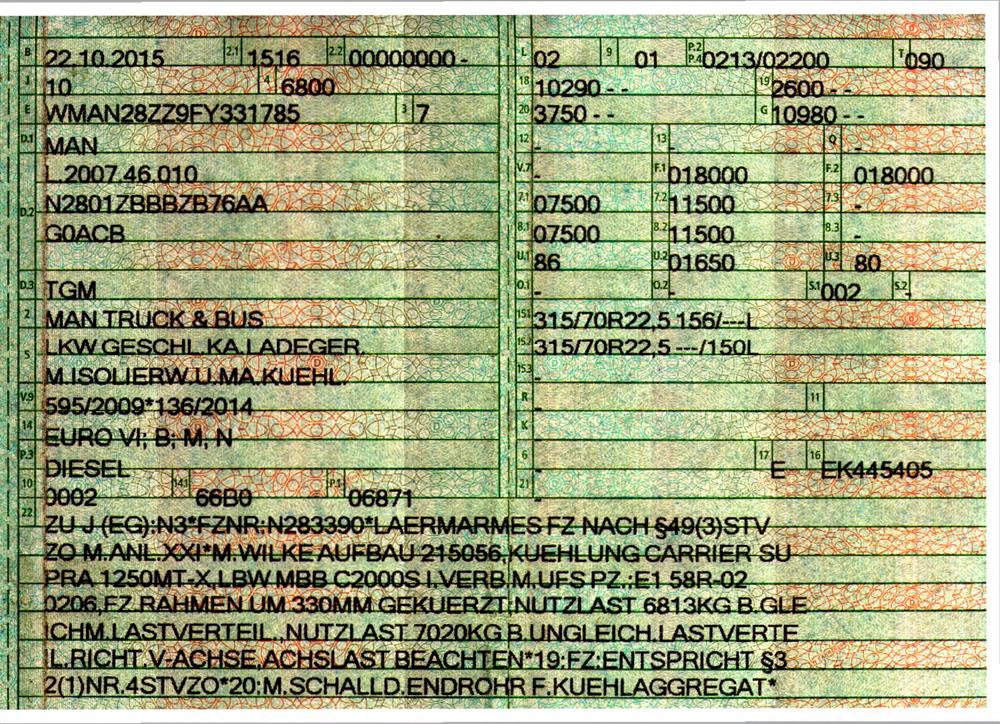 B 22.10.2015 2.1 1516 2.2 00000000 - L 02 9 01 P.2 P.4 0213/02200 T 090
J 10 4 6800 18 10290 - - 19 2600 - -
E WMAN28ZZ9FY331785 3 7 20 3750 - - G 10980 - -
D.1 MAN 12 - 13 - Q -
L.2007.46.010 V.7 - F.1 018000 F.2 018000
D.2 N2801ZBBBZB76AA 7.1 07500 7.2 11500 7.3 -
G0ACB 8.1 07500 8.2 11500 8.3 -
U.1 86 U.2 01650 U.3 80
D.3 TGM O.1 - O.2 - S.1 002 S.2 -
2 MAN TRUCK & BUS 15.1 315/70R22,5 156/---L
5 LKW GESCHL.KA.LADEGER. 15.2 315/70R22,5 ---/150L
M.ISOLIERW.U.MA.KUEHL. 15.3 -
V.9 595/2009*136/2014 R - 11
14 EURO VI; B; M, N K -
P.3 DIESEL 6 - 17 E 16 EK445405
10 0002 14.1 66B0 P.1 06871 21 -
22 ZU J (EG):N3*FZNR:N283390*LAERMARMES FZ NACH §49(3)STV
ZO M.ANL.XXI*M.WILKE AUFBAU 215056,KUEHLUNG CARRIER SU
PRA 1250MT-X,LBW MBB C2000S I.VERB.M.UFS PZ.:E1 58R-02
0206,FZ.RAHMEN UM 330MM GEKUERZT:NUTZLAST 6813KG B.GLE
ICHM.LASTVERTEIL.,NUTZLAST 7020KG B.UNGLEICH.LASTVERTE
IL.RICHT.V-ACHSE,ACHSLAST BEACHTEN*19:FZ:ENTSPRICHT §3
2(1)NR.4STVZO*20:M.SCHALLD.ENDROHR F.KUEHLAGGREGAT*